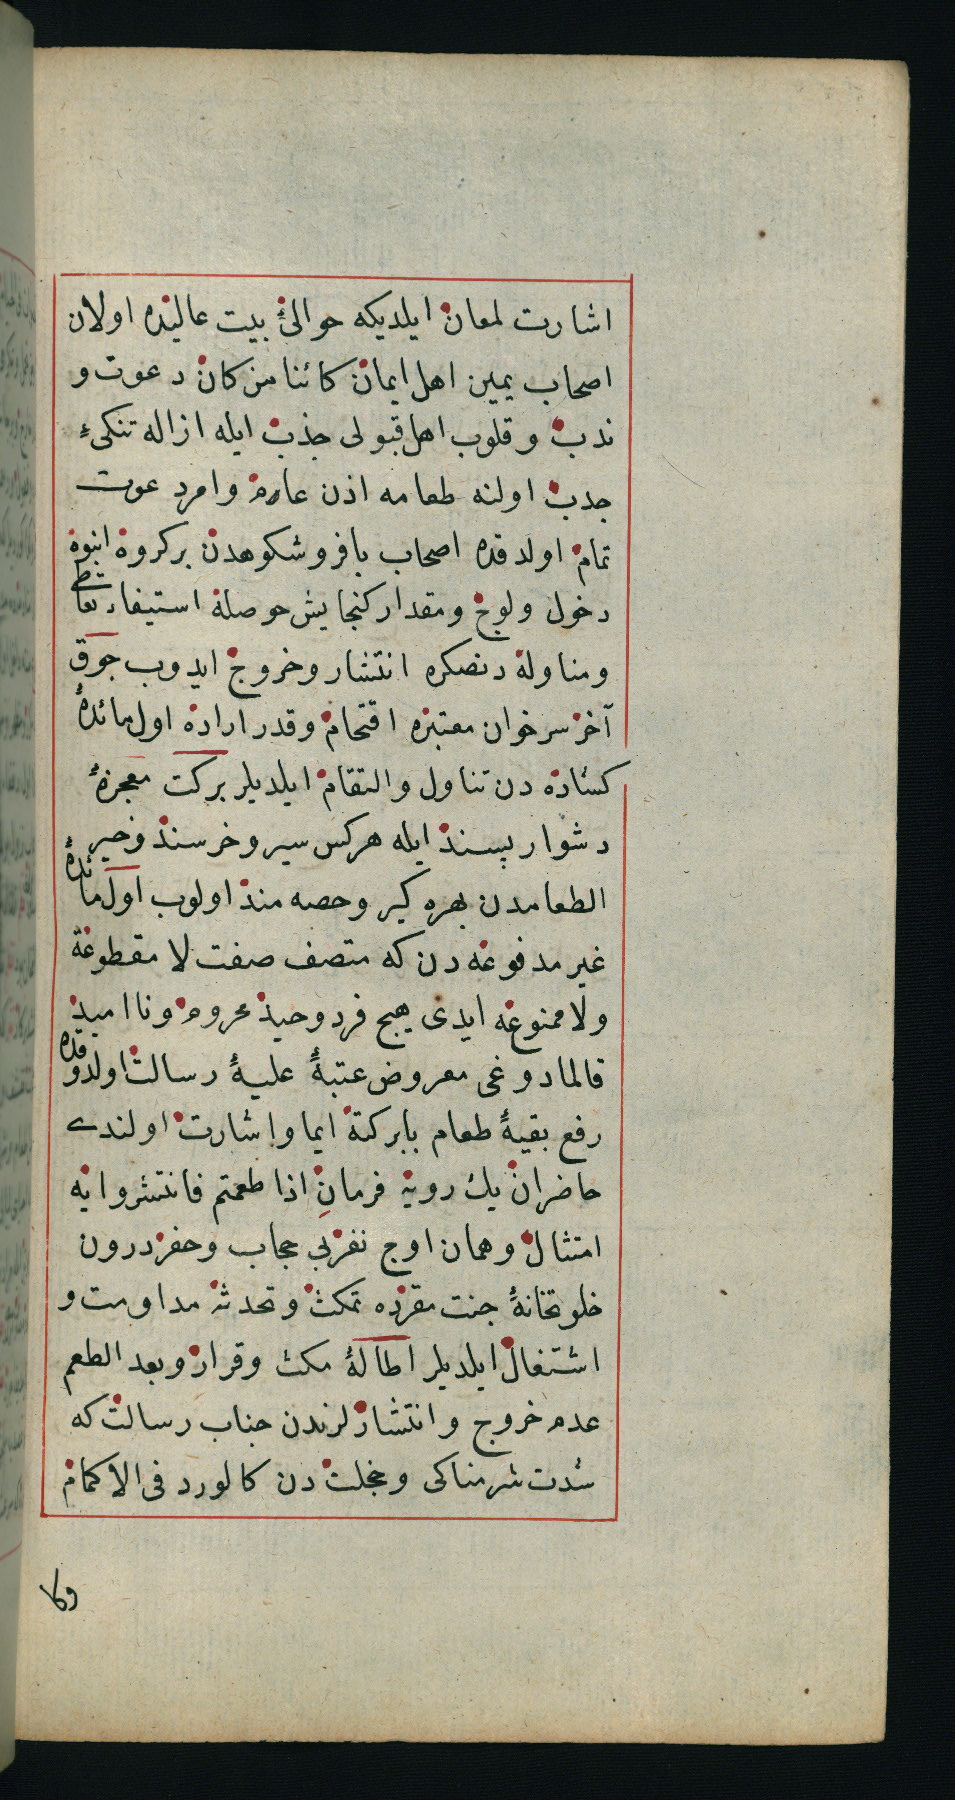 اشارت لمعان ايلديكه حوالئ بيت عالينده اولان
اصحاب يمين اهل ايمان كائنا من كان دعوت و
ندب و قلوب اهل قبولى جذب ايله ازاله تنكئ
جدب اولنه طعامه اذن عام و امر دعوت
تمام اولدقده اصحاب بافر و شكوهدن بر كروه انبوه
دخول و ولوج و مقدار كنجايش حوصله استيفاء تعاطى
و مناوله دنصكره انتشار و خروج ايدوب جوق
آخر سر خوان معتبره اقتحام و قدر اراده اول مائدۀ
كشاده دن تناول و التقام ايلديلر بركت معجزۀ
دشوار پسند ايله هركس سير و خرسند و خير
الطعامدن بهره كير و حصه مند اولوب اول مائدۀ
غير مدفوعه دن كه متصف صفت لا مقطوعة
ولا ممنوعه ايدى هيچ فرد وحيد محروم و نااميد
قالمادوغى معروض عتبۀ عليۀ رسالت اولدوقده
رفع بقيۀ طعام بابركة ايما و اشارت اولندى
حاضران يك رويه فرمان اذا طعمتم فانتشروا يه
امتثال و همان اوج نفر بى حجاب و حفر درون
خلوتخانۀ جنت مقرده تمكث و تحدثه مداومت و
اشتغال ايلديلر اطالۀ مكث و قرار و بعد الطعم
عدم خروج و انتشارلرندن جناب رسالت كه
شدت شرمناكى و خجلت دن كالورد فى الاكمام